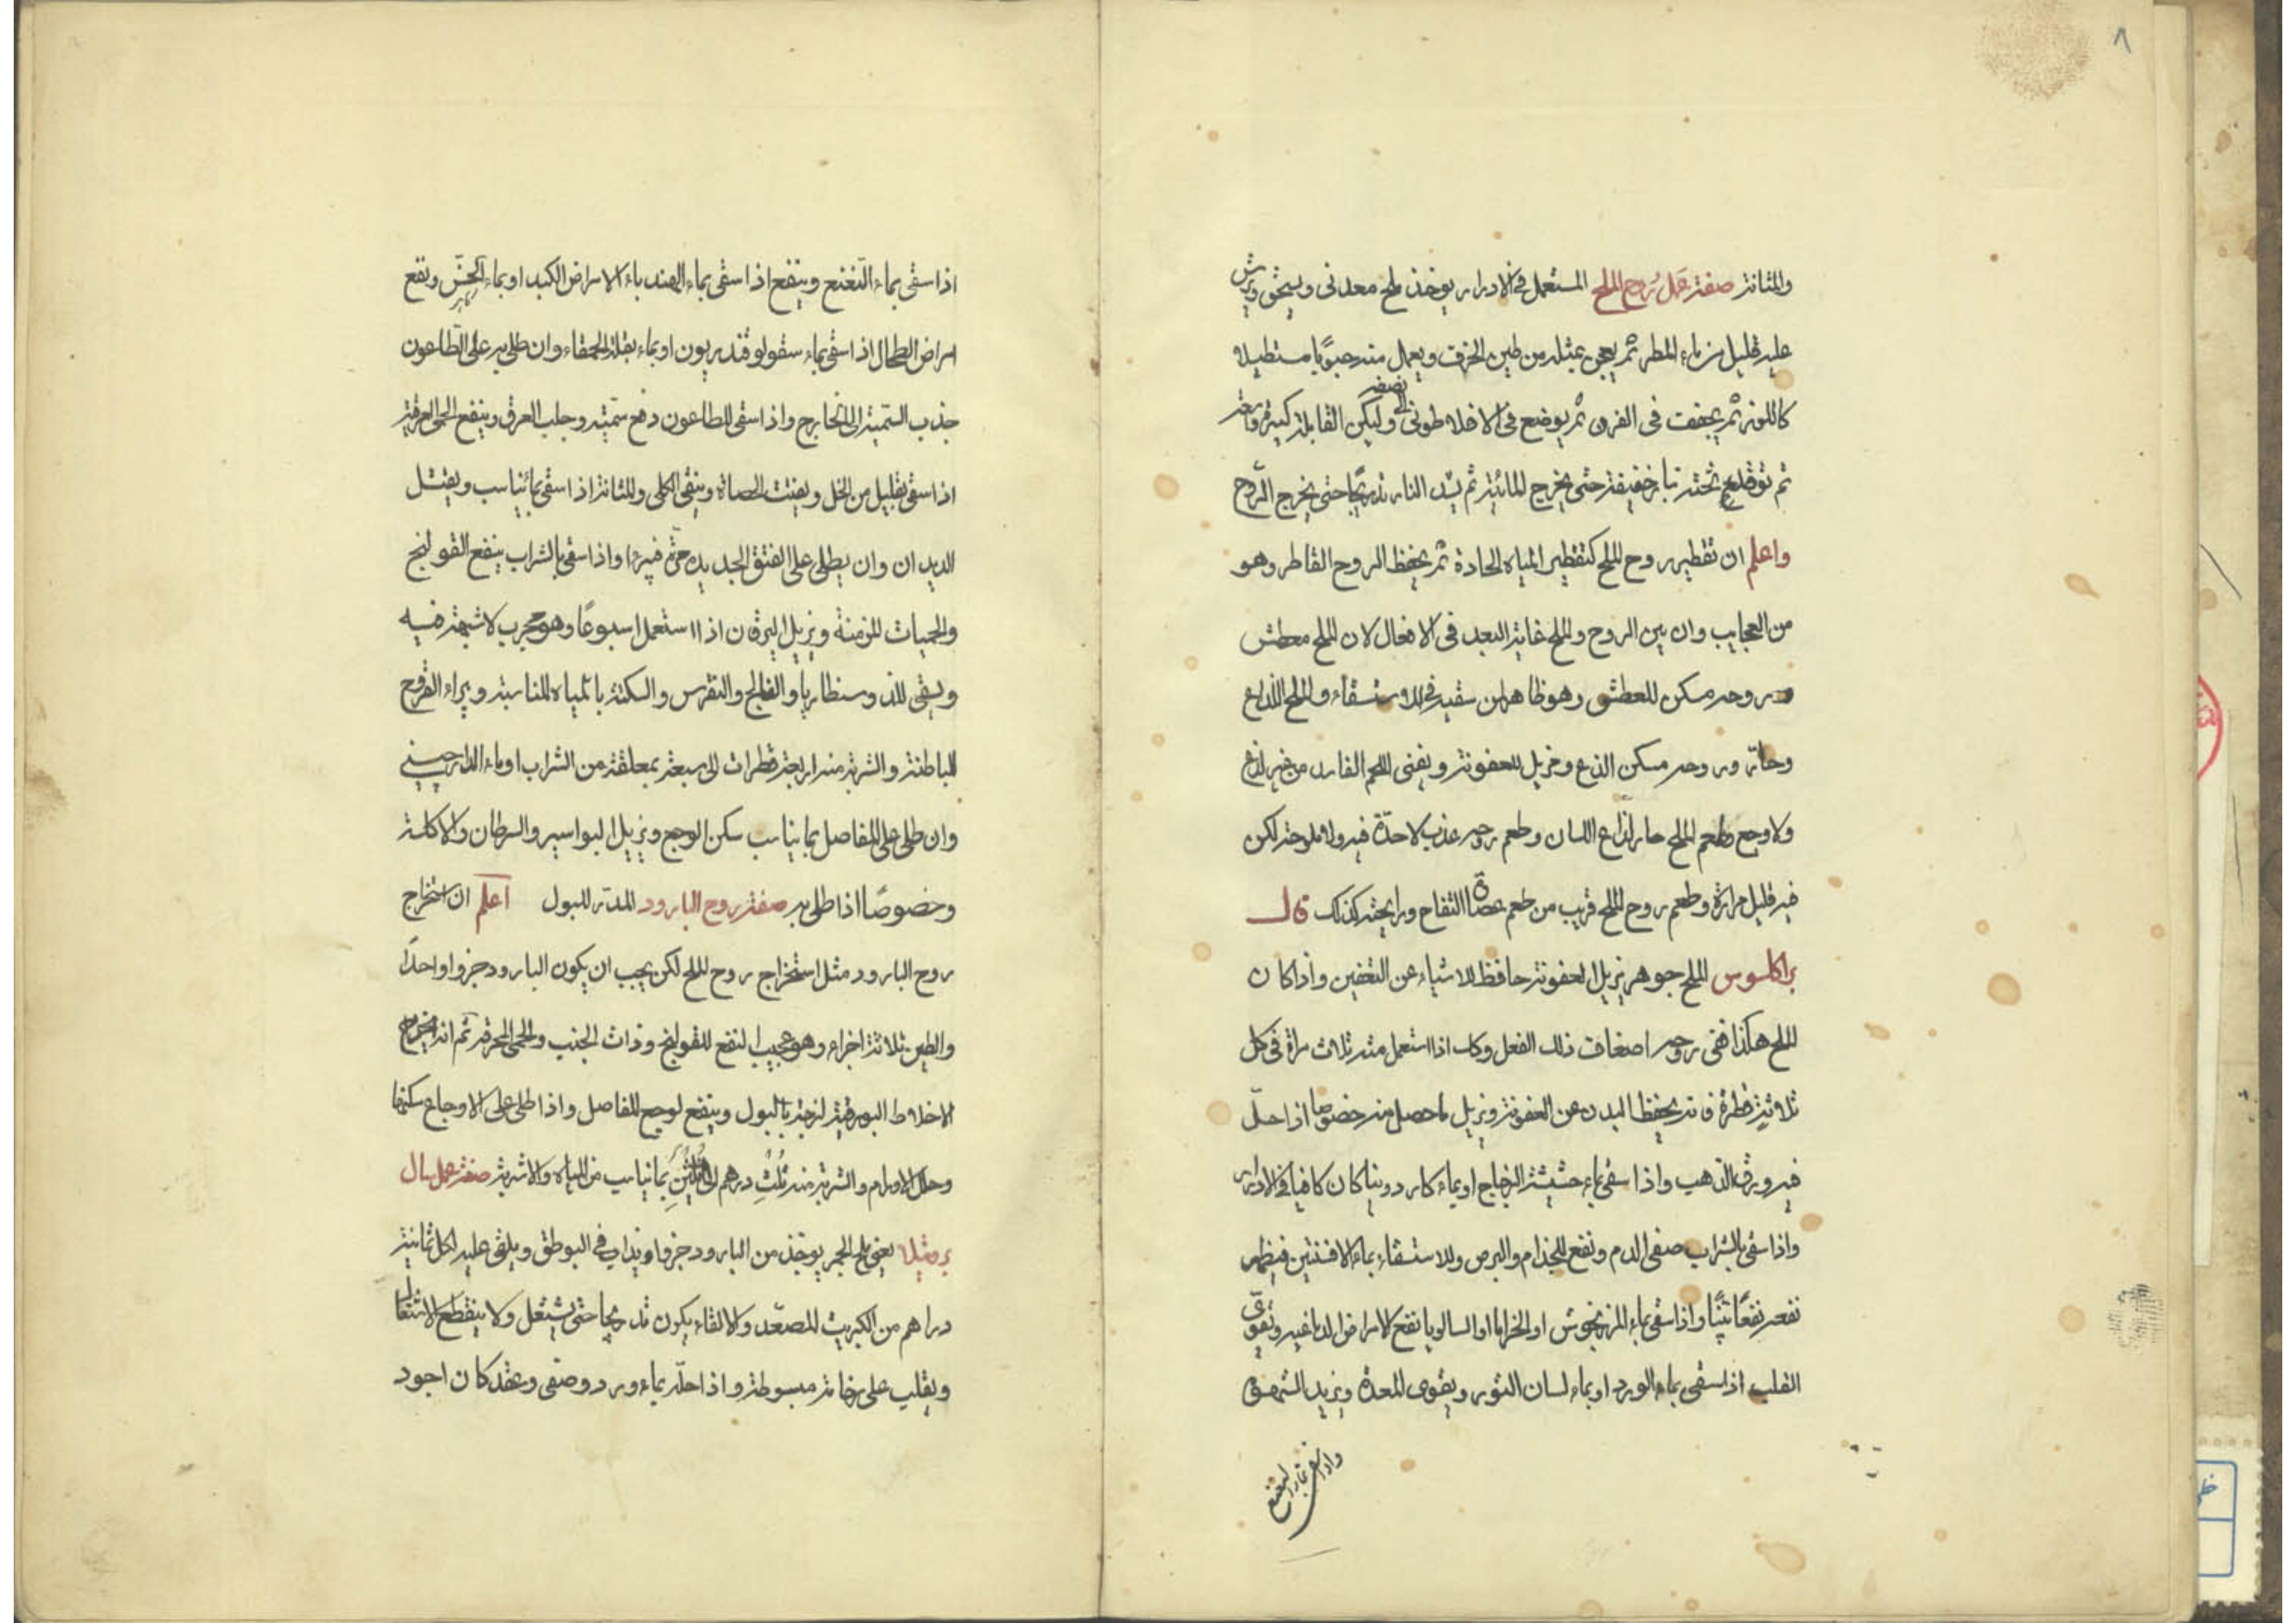 ٨
والمثانة صفة عمل روح الملح المستعمل في الادرار يوخذ ملح معدنى ويسحق ويرش
عليه قليل من ماء المطر ثم يعجن بمثله من طين الخزف ويعمل منه حبوبًا مستطيلا
كاللوز ثم يجفف فى الفرن ثم يوضع فى الاخلاطونى الى نصفه وليكن القابلة كبيرة واسعة
ثم توقد تحته نار خفيفة حتى يخرج المائية ثم يشد النار تدريجًا حتى يخرج الروح
واعلم ان تقطير روح الملح كتقطير المياه الحادة ثم يحفظ الروح القاطر وهو
من العجايب وان بين الروح والملح غاية البعد فى الافعال لان الملح معطش
وروحه مسكن للعطش وهو ظاهر لمن سقيه فى الاستسقاء والملح اللذاع
وحار وروحه مسكن الذع ومزيل للعفونة ويفنى اللحم الفاسد من غير لذع
ولا وجع وطعم الملح حار لذاع اللسان وطعم روحه عذب لا حدة فيه ولا ملوحة لكن
فيه قليل مرارة وطعم روح الملح قريب من طعم عصارة التفاح ورايحته كذلك قال
براكلسوس الملح جوهر يزيل العفونة حافظ للاشياء عن التعفين واذا كان
الملح هكذا ففى روحه اضعاف ذلك الفعل وكان اذا استعمل منه ثلاث مراة فى كل
ثلاثة قطرة فانه يحفظ البدن عن العفونة ويزيل ما حصل منه خصوصا اذا حلّ
فيه ورق الذهب واذا سقى بماء حشيشة الزجاج او بماء كاردوبنيا كان كافيا فى الادرار
واذا سقى بالشراب صفى الدم ونفع للجذام والبرص وللاستسقاء بماء الافسنتين فيظهر
نفعه نفعًا بيّنًا واذا سقى بماء المرزنجوش او الخزاما او السالويا نفع لامراض الدماغيه ويقوى
القلب اذا سقى بماء الورد او بماء لسان الثور ويقوى المعدة ويزيد الشهوة
واذا سقى بماء النعنع
اذا سقى بماء النعنع وينفع اذا سقى بماء الهندباء لامراض الكبد او بماء الخسّ وينفع
امراض الطحال اذا سقى بماء سقولوقندريون او بماء بقلة الحمقاء وان طلى به على الطاعون
جذب السمية الى الخارج واذا سقى للطاعون دفع سميته وجلب العرق وينفع الحمى العرقية
اذا سقى بقليل من الخل ويفتت الحصاة وينقى الكلى والمثانة اذا سقى بما يناسب ويقتل
الديدان وان يطلى على الفتق الجديد واذا سقى بالشراب ينفع القولنج
والحميات المزمنة ويزيل اليرقان اذا استعمل اسبوعًا وهو مجرب لا شبهة فيه
ويسقى للذوسنطاريا والفالج والنقرس والسكتة بالمياه المناسبة ويبراء القروح
الباطنة والشربة منه اربعة قطرات الى سبعة بمعلقة من الشراب او ماء الدارصينى
وان طلى على المفاصل بما يناسب سكن الوجع ويزيل البواسير والسرطان والاكلة
وخصوصًا اذا طلى به صفة روح البارود المدر للبول اعلم ان استخراج
روح البارود مثل استخراج روح الملح لكن يجب ان يكون البارود جزوا واحدًا
والطين ثلاثة اجزاء وهو عجيب النفع للقولنج وذات الجنب والحمى المحرقة ثم انه يخرج
الاخلاط البورقية لزجة بالبول وينفع لوجع المفاصل واذا طلى على الاوجاع سكنها
وحلل الاورام والشربة منه ثلث درهم الى ثلثين بما يناسب من المياه والاشربة صفة عمل سال
برونيلا يعنى ملح الجمر يوخذ من البارود جزوا ويذاب فى البوطق ويلقى عليه لكل ثمانية
دراهم من الكبريت المصعّد والالقاء يكون تدريجا حتى يشتعل ولا ينقطع الاشتعال
ويقلب على رخامة مبسوطة واذا حلّه بماء ورد وصفى وعقد كان اجود